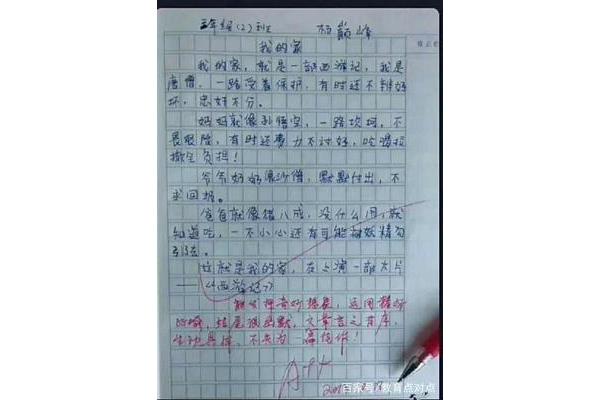 三年级(2)班 杨巅峰
我的家
我的家，就是一部西游记，我是
唐僧，一路受着保护，有时还不辨好
坏，忠奸不分。
妈妈就像孙悟空，一路坎坷，不
畏艰险，有时还费力不讨好，吃喝拉
撒全负担！
爷爷奶奶像沙僧，默默付出，不
求回报。
爸爸就像猪八戒，没什么用，就
知道吃，一不小心还有可能被妖精勾
引去。
这就是我的家，在上演一部大片
——《西游记》
能发挥奇妙想象，运用精妙
的比喻，结尾很幽默，文章言之有序，
生动具体，不失为一篇佳作！
A++
百家号/教育点对点